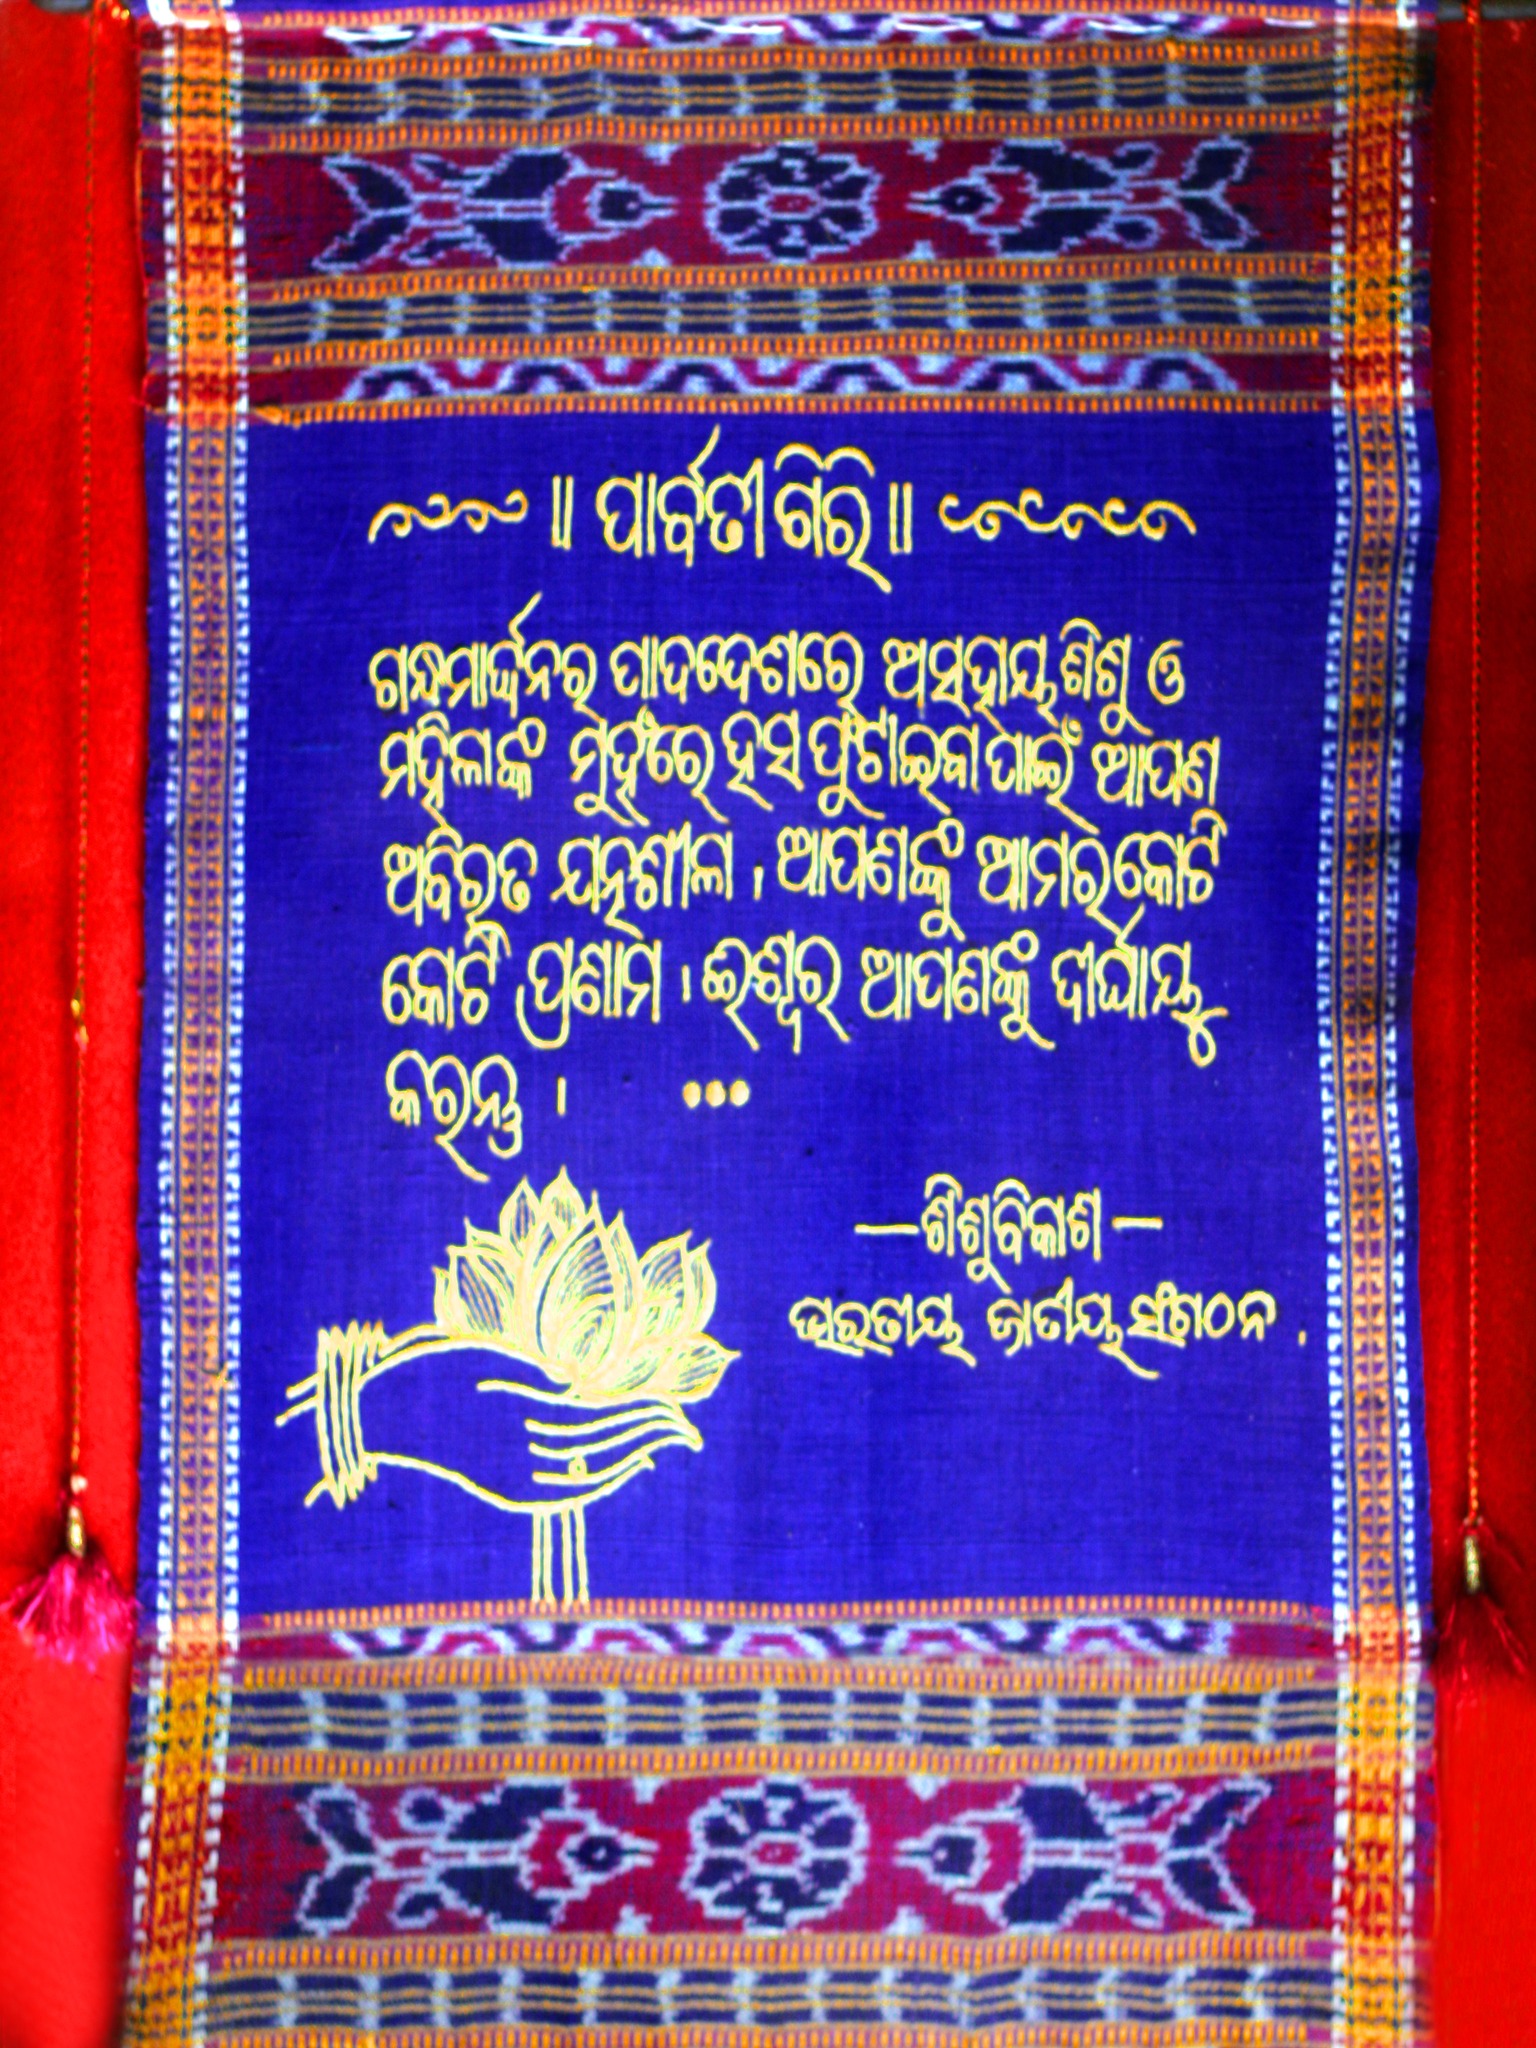 ॥ ପାର୍ବତୀ ଗିରି ॥
ଗନ୍ଧମାର୍ଦ୍ଦନର ପାଦଦେଶରେ ଅସହାୟ ଶିଶୁ ଓ
ମହିଳାଙ୍କ ମୁହଁରେ ହସ ଫୁଟାଇବା ପାଇଁ ଆପଣ
ଅବିରତ ଯତ୍ନଶୀଳ । ଆପଣଙ୍କୁ ଆମର କୋଟି
କୋଟି ପ୍ରଣାମ । ଈଶ୍ୱର ଆପଣଙ୍କୁ ଦୀର୍ଘାୟୁ
କରନ୍ତୁ । •••
— ଶିଶୁବିକାଶ —
ଭାରତୀୟ ଜାତୀୟ ସଂଗଠନ .